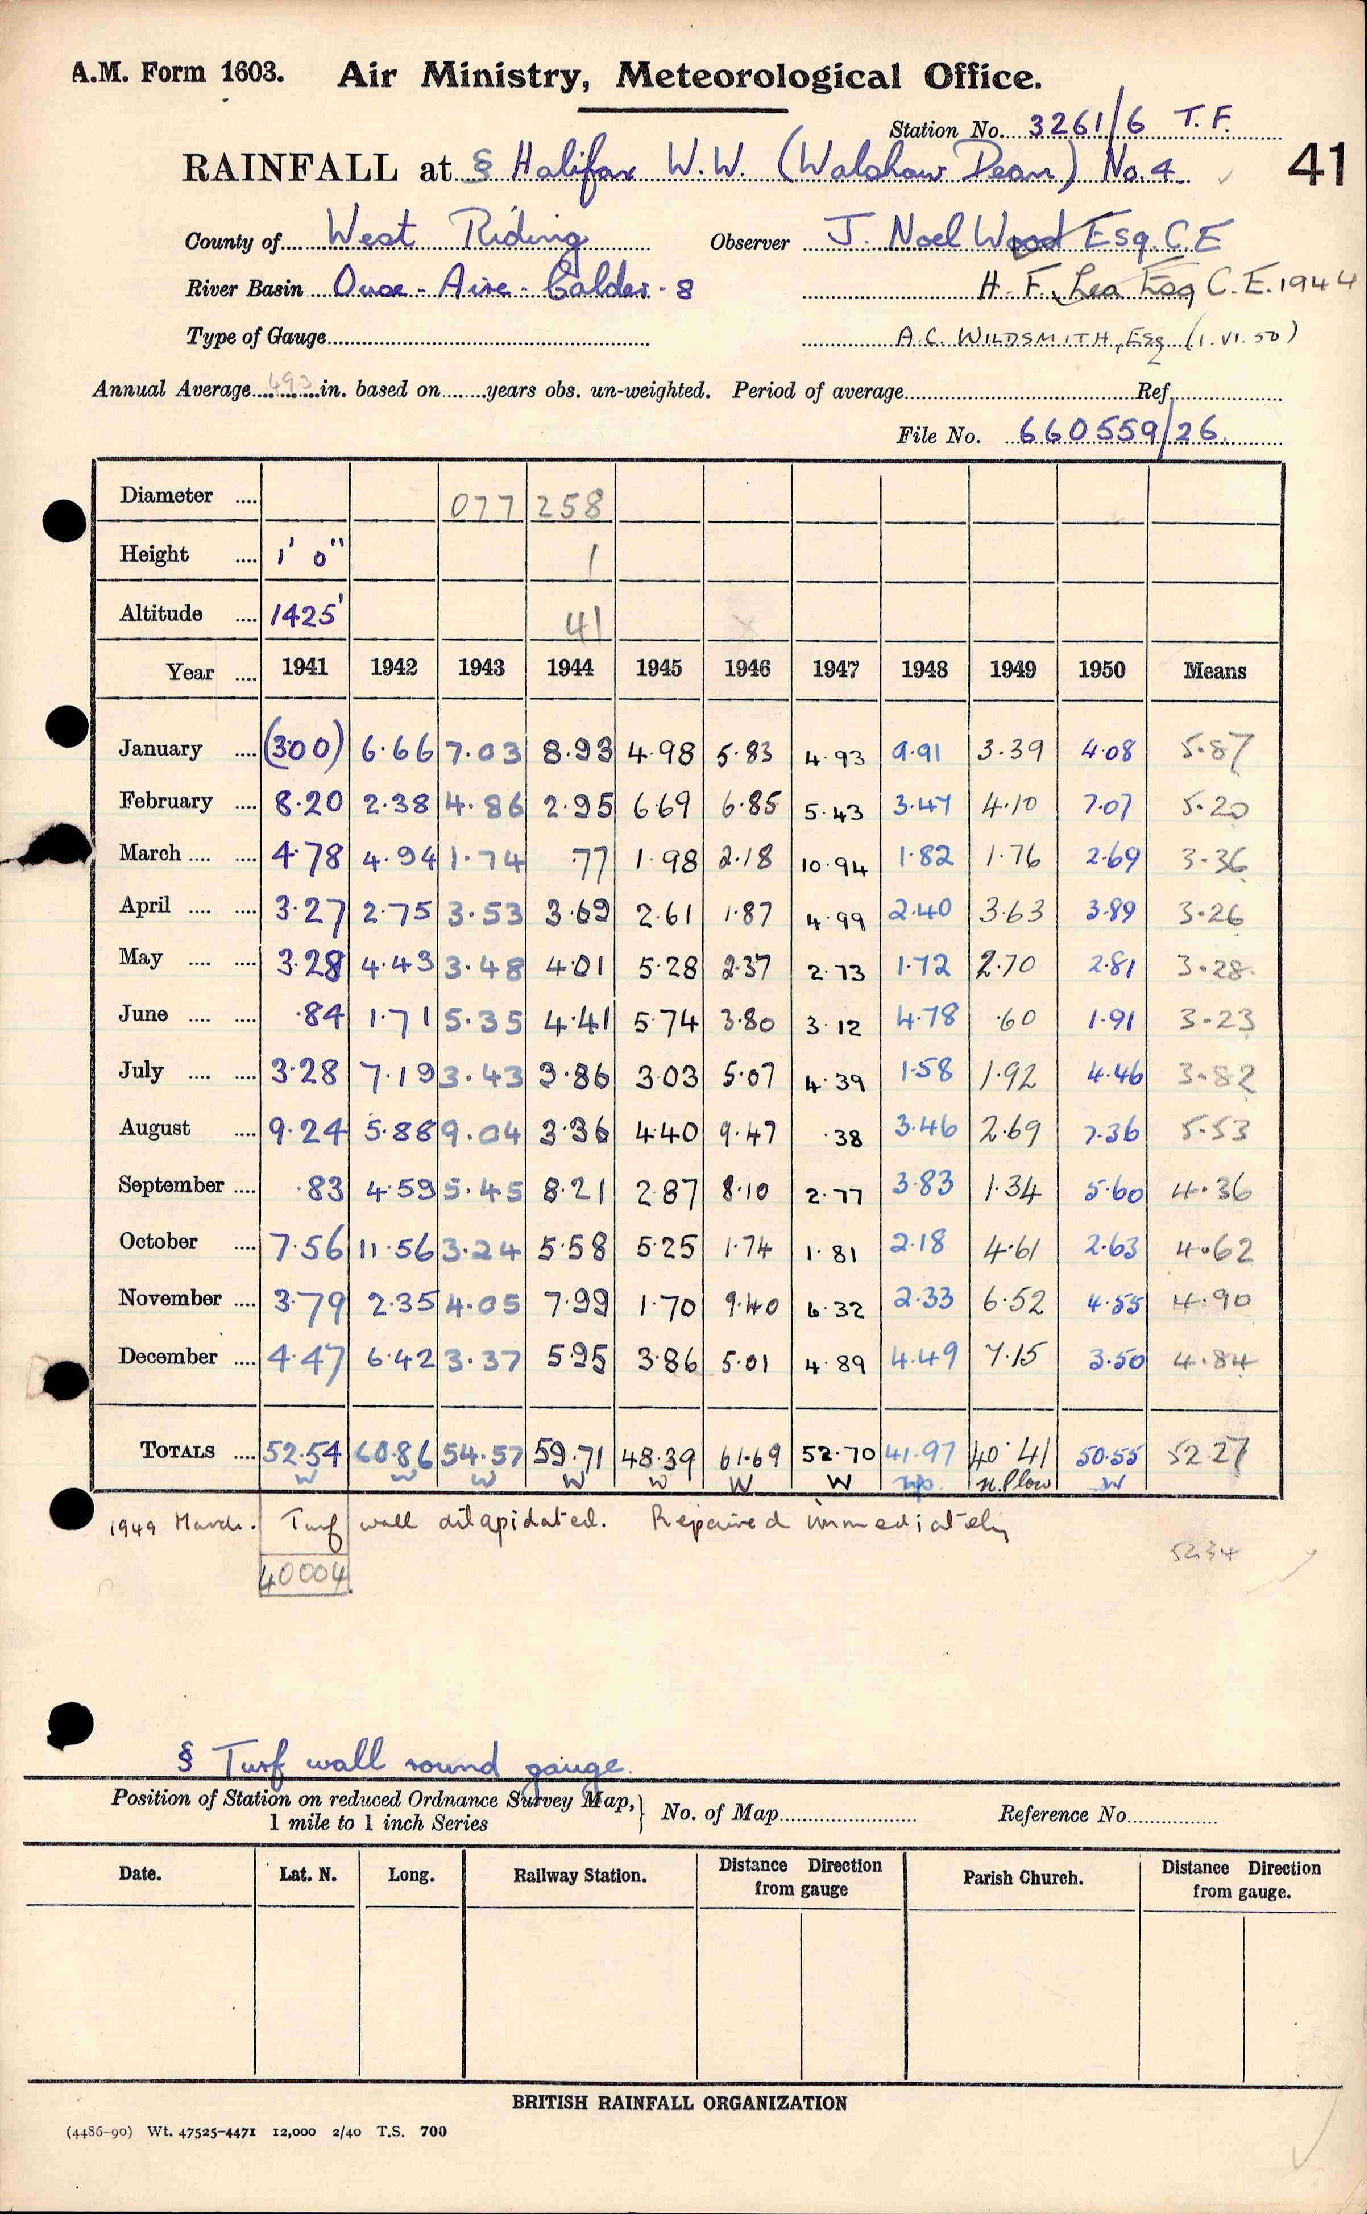 A.M. Form 1603. Air Ministry, Meteorological Office.
Station No. 3261/6 T.F.
RAINFALL at § Halifax W.W. (Walshaw Dean) No. 4 41
County of West Riding Observer J. Noel Wood Esq. C.E
River Basin Ouse - Aire - Calder - 8 H. F. Lea Esq C.E. 1944
Type of Gauge A.C. WILDSMITH, Esq (1.VI.50)
Annual Average 493 in. based on years obs. un-weighted. Period of average Ref
File No. 660559/26
Diameter .... 077 258
Height .... 1' 0" 1
Altitude .... 1425' 41
Year .... 1941 1942 1943 1944 1945 1946 1947 1948 1949 1950 Means
January .... (3.00) 6.66 7.03 8.93 4.98 5.83 4.93 9.91 3.39 4.08 5.87
February .... 8.20 2.38 4.86 2.95 6.69 6.85 5.43 3.47 4.10 7.07 5.20
March .... .... 4.78 4.94 1.74 .77 1.98 2.18 10.94 1.82 1.76 2.69 3.36
April .... .... 3.27 2.75 3.53 3.69 2.61 1.87 4.99 2.40 3.63 3.89 3.26
May .... .... 3.28 4.43 3.48 4.01 5.28 2.37 2.73 1.72 2.70 2.81 3.28
June .... .... .84 1.71 5.35 4.41 5.74 3.80 3.12 4.78 .60 1.91 3.23
July .... .... 3.28 7.19 3.43 3.86 3.03 5.07 4.39 1.58 1.92 4.46 3.82
August .... 9.24 5.88 9.04 3.36 4.40 9.47 .38 3.46 2.69 7.36 5.53
September .... .83 4.59 5.45 8.21 2.87 8.10 2.77 3.83 1.34 5.60 4.36
October .... 7.56 11.56 3.24 5.58 5.25 1.74 1.81 2.18 4.61 2.63 4.62
November .... 3.79 2.35 4.05 7.99 1.70 9.40 6.32 2.33 6.52 4.55 4.90
December .... 4.47 6.42 3.37 5.95 3.86 5.01 4.89 4.49 7.15 3.50 4.84
TOTALS .... 52.54 60.86 54.57 59.71 48.39 61.69 52.70 41.97 40.41 50.55 52.27
W W W W W W W
1949 March. Turf wall dilapidated. Repaired immediately
5234
40004
§ Turf wall round gauge.
Position of Station on reduced Ordnance Survey Map, } No. of Map Reference No.
1 mile to 1 inch Series
Date. Lat. N. Long. Railway Station. Distance Direction from gauge Parish Church. Distance Direction from gauge.
BRITISH RAINFALL ORGANIZATION
(4486-90) Wt. 47525-4471 12,000 2/40 T.S. 700